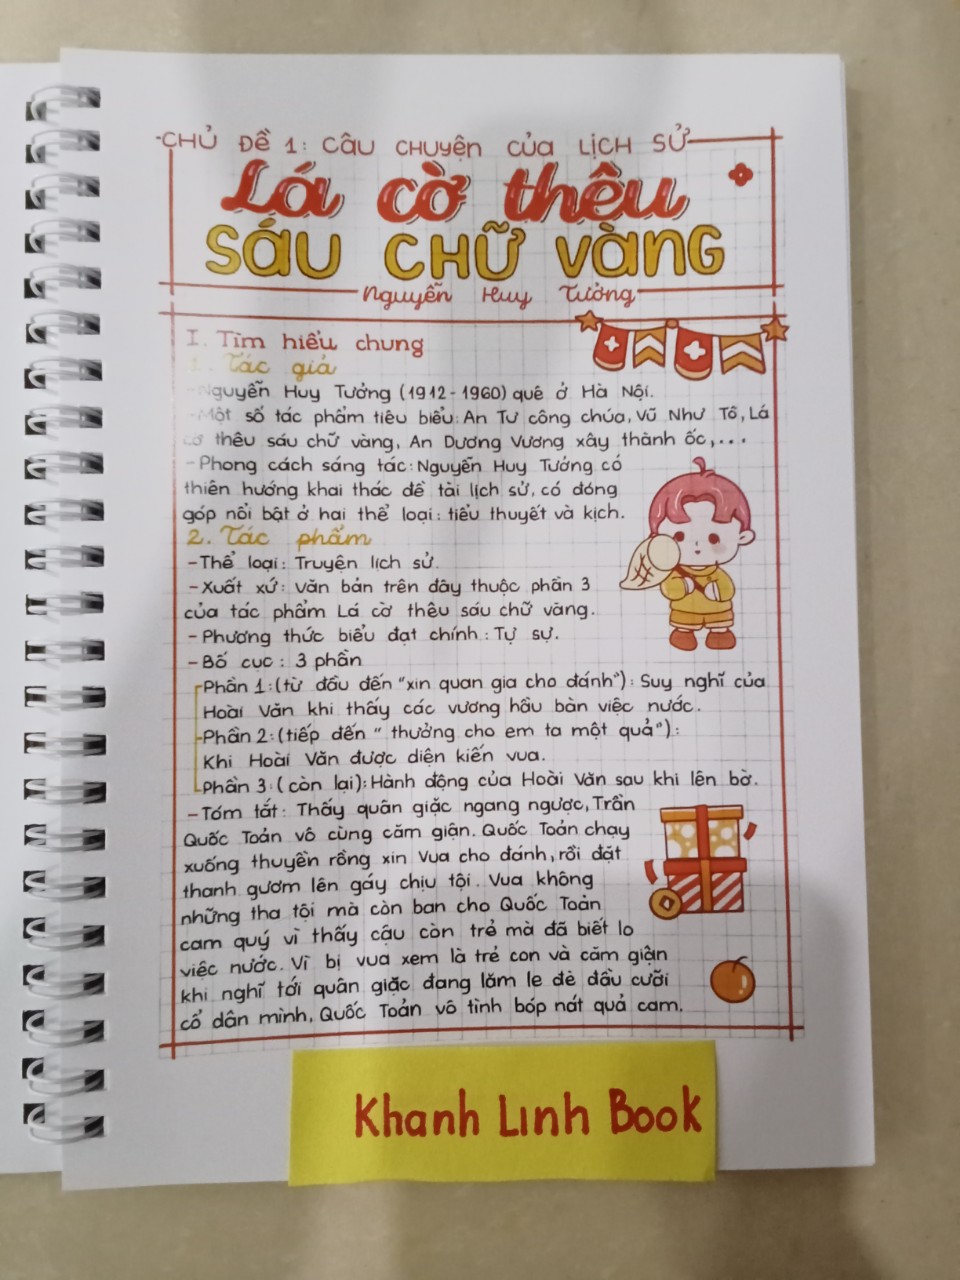 CHỦ ĐỀ 1: CÂU CHUYỆN CỦA LỊCH SỬ
Lá cờ thêu
SÁU CHỮ VÀNG
Nguyễn Huy Tưởng
I. Tìm hiểu chung
1. Tác giả
-Nguyễn Huy Tưởng (1912-1960) quê ở Hà Nội.
-Một số tác phẩm tiêu biểu: An Tư công chúa, Vũ Như Tô, Lá
cờ thêu sáu chữ vàng, An Dương Vương xây thành ốc,...
-Phong cách sáng tác: Nguyễn Huy Tưởng có
thiên hướng khai thác đề tài lịch sử, có đóng
góp nổi bật ở hai thể loại: tiểu thuyết và kịch.
2. Tác phẩm
-Thể loại: Truyện lịch sử.
-Xuất xứ: Văn bản trên đây thuộc phần 3
của tác phẩm Lá cờ thêu sáu chữ vàng.
-Phương thức biểu đạt chính: Tự sự.
-Bố cục: 3 phần
Phần 1:(từ đầu đến "xin quan gia cho đánh"): Suy nghĩ của
Hoài Văn khi thấy các vương hầu bàn việc nước.
Phần 2:(tiếp đến "thưởng cho em ta một quả"):
Khi Hoài Văn được diện kiến vua.
Phần 3:(còn lại): Hành động của Hoài Văn sau khi lên bờ.
-Tóm tắt: Thấy quân giặc ngang ngược, Trần
Quốc Toản vô cùng căm giận. Quốc Toản chạy
xuống thuyền rồng xin Vua cho đánh, rồi đặt
thanh gươm lên gáy chịu tội. Vua không
những tha tội mà còn ban cho Quốc Toản
cam quý vì thấy cậu còn trẻ mà đã biết lo
việc nước. Vì bị vua xem là trẻ con và căm giận
khi nghĩ tới quân giặc đang lăm le đè đầu cưỡi
cổ dân mình, Quốc Toản vô tình bóp nát quả cam.
Khanh Linh Book